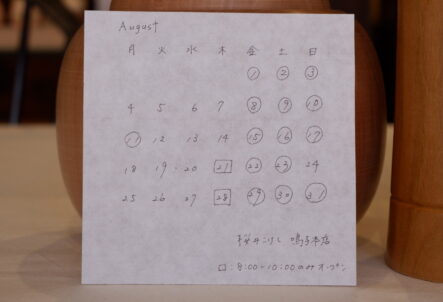 August
月 火 水 木 金 土 日
1 2 3
4 5 6 7 8 9 10
11 12 13 14 15 16 17
18 19 20 21 22 23 24
25 26 27 28 29 30 31
桜井こけし 鳴子本店
□:8:00-10:00のみオープン